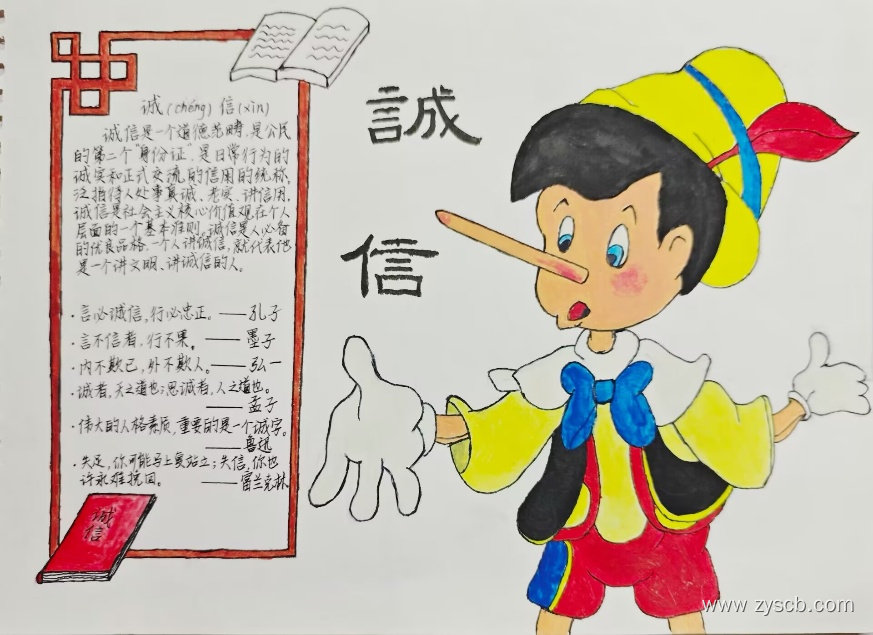 诚(chéng)信(xìn)
诚信是一个道德范畴,是公民
的第二个"身份证",是日常行为的
诚实和正式交流的信用的统称,
泛指待人处事真诚、老实、讲信用,
诚信是社会主义核心价值观在个人
层面的一个基本准则。诚信是人必备
的优良品格,一个人讲诚信,就代表他
是一个讲文明、讲诚信的人。
·言必诚信,行必忠正。——孔子
·言不信者,行不果。——墨子
·内不欺己,外不欺人。——弘一
·诚者,天之道也;思诚者,人之道也。
——孟子
·伟大的人格素质,重要的是一个诚字。
——鲁迅
·失足,你可能马上复站立;失信,你也
许永难挽回。——富兰克林
诚
信
誠
信
www.zyscb.com